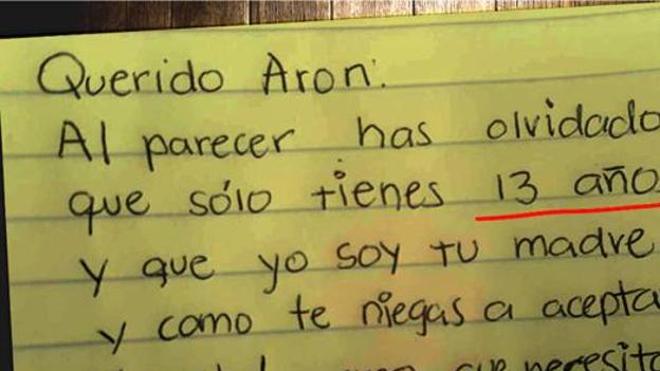 Querido Aron:
Al parecer has olvidado
que sólo tienes 13 año
y que yo soy tu madre
y como te niegas a acepta
que necesita